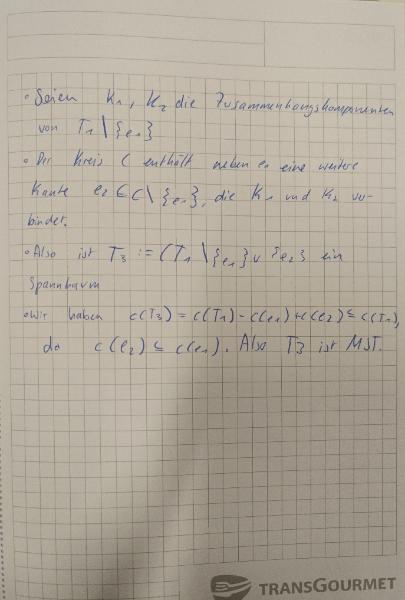 • Seien K₁, K₂ die Zusammenhangskomponenten
von T₁ \ {e₁}
• Der Kreis C enthält neben e₁ eine weitere
Kante e₂ ∈ C \ {e₁}, die K₁ und K₂ ver-
bindet.
• Also ist T₃ := (T₁ \ {e₁} ∪ {e₂} ein
Spannbaum
• Wir haben c(T₃) = c(T₁) - c(e₁) + c(e₂) ≤ c(T₁),
da c(e₂) ≤ c(e₁). Also T3 ist MST.
TRANSGOURMET